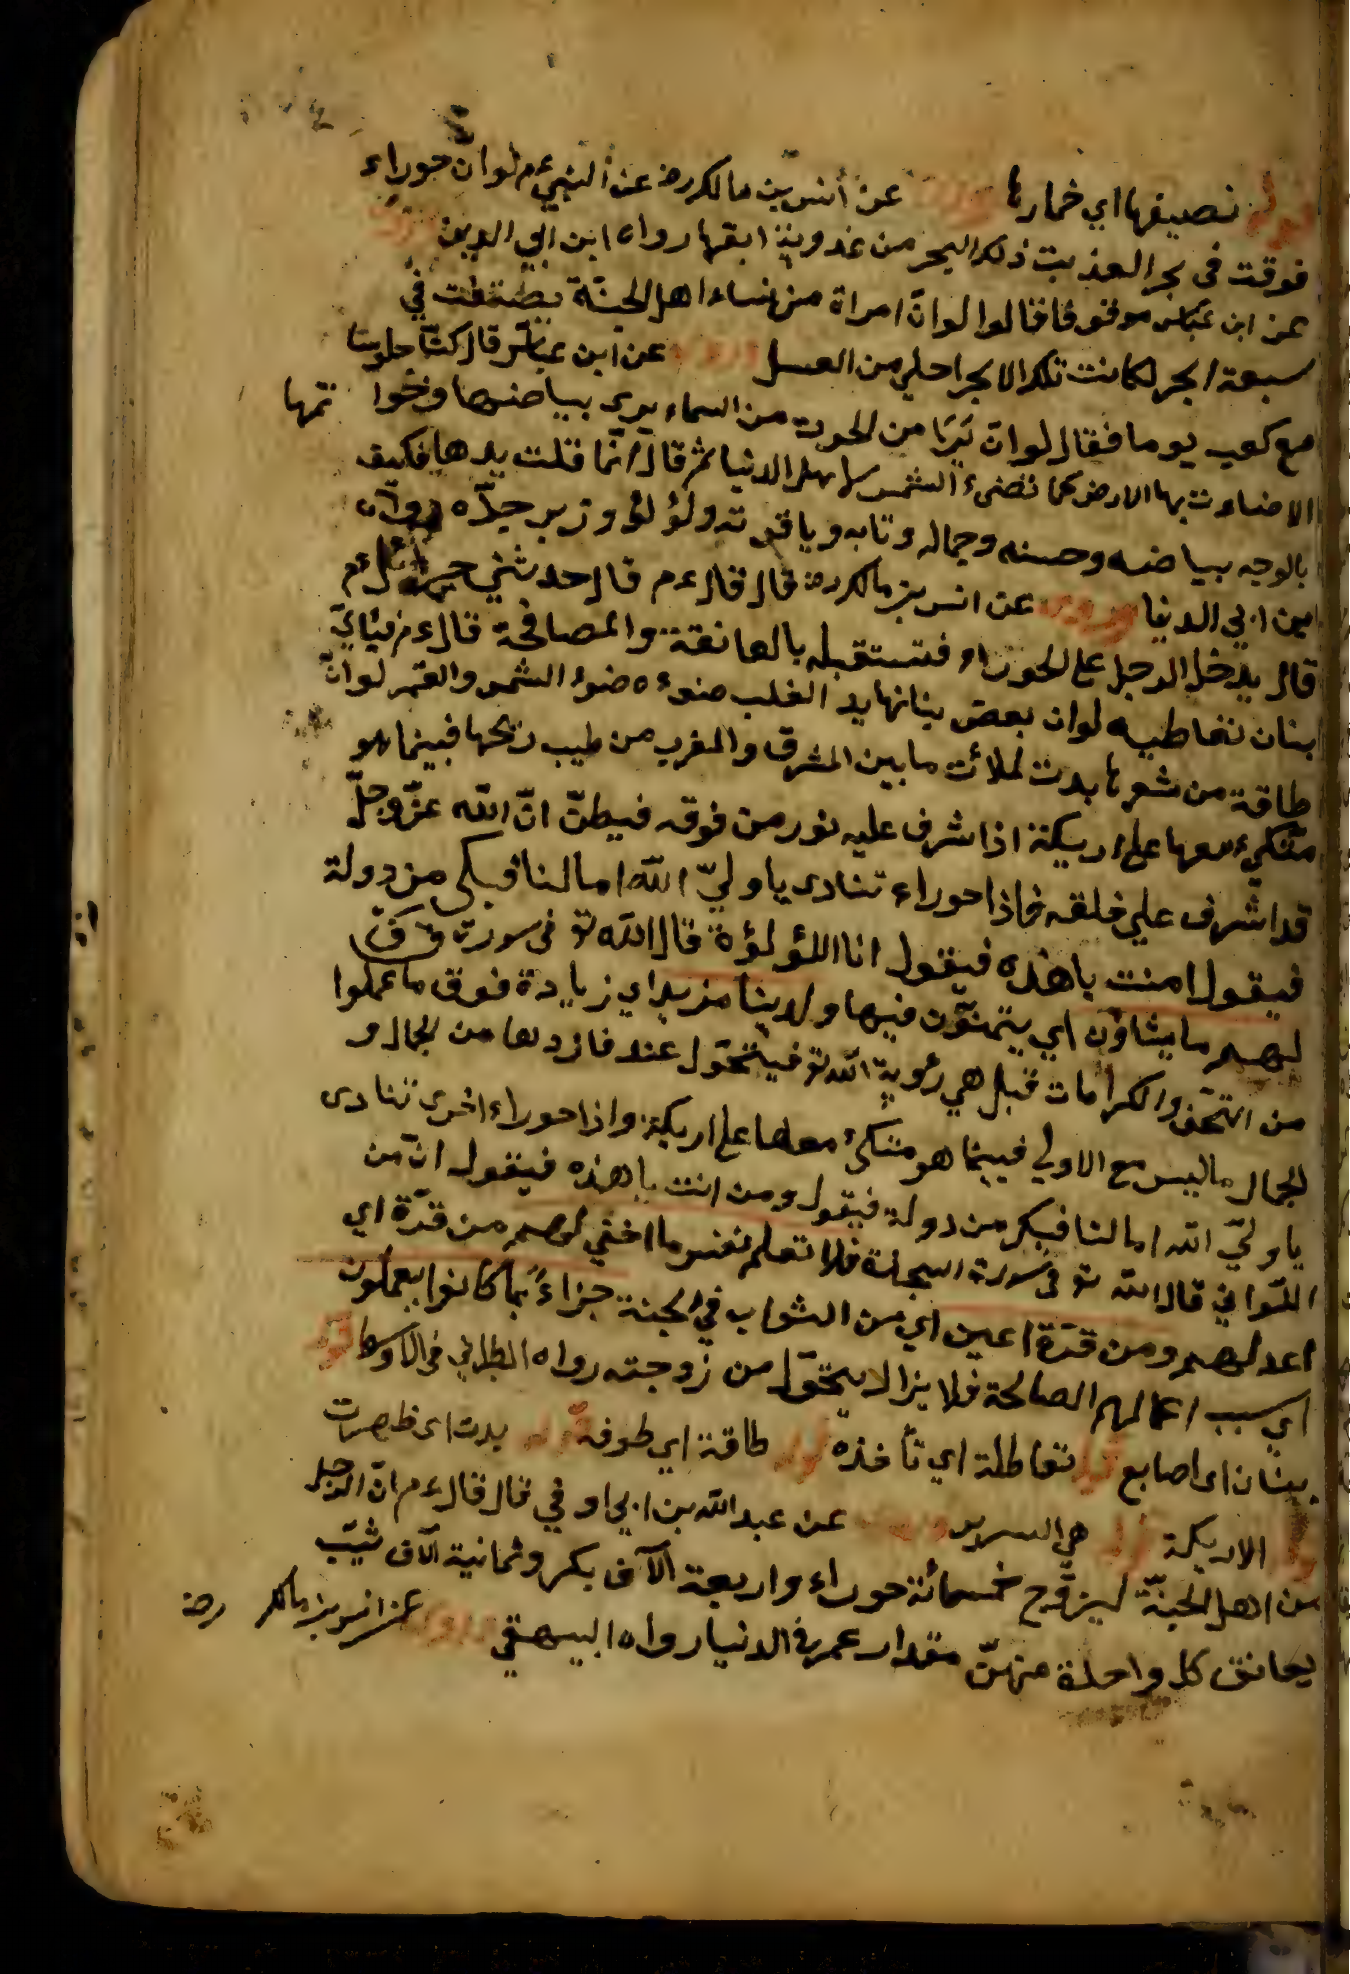 قوله نصيفها اي خمارها وروى عن أنس بن مالك رضـ عن النبي عم لو ان حوراء
فوقت في بحر لعذبت ذلك البحر من عذوبة ريقها رواه ابن ابي الدين وروى
عن ابن عباس موقوفا قالوا لو انّ امراة من نساء اهل الجنّة بصقت في
سبعة ابحر لكانت تلك الابحر احلى من العسل وروى عن ابن عباس قال كنّا جلوسا
مع كعب يوما فقال لو انّ يدا من الحور من السماء يرى ببياضها وخواتمها
لاضاءت بها الارض كما تضيء الشمس لاهل الدنيا ثم قال انّما قلت يدها فكيف
بالوجه ببياضه وحسنه وجماله وتاجه وياقوته ولؤلؤ وزبرجده رواه
ابن ابي الدنيا وروى عن انس بن مالك رضـ قال قال عم قال حدثني جبرائل عم
قال يدخل الرجل على الحوراء فتستقبله بالمعانقة والمصافحة قال عم فبأيّ
بنان تعاطيه لو ان بعض بنانها بد الغلب ضوءه ضوء الشمس والقمر لو انّ
طاقة من شعرها بدت لملائت ما بين المشرق والمغرب من طيب ريحها فبينما هو
متّكىء معها على اريكة اذا شرف عليه نور من فوقه فيظنّ انّ الله عزّ وجلّ
قد اشرف على خلقه فاذا حوراء تنادى يا وليّ الله اما لنا فيك من دولة
فيقول امنت يا هذه فيقول انا اللؤلؤة قال الله تع في سورة ق ق
لهم ما يشاؤن اي يتمنّون فيها ولدينا مزيد اي زيادة فوق ما عملوا
من التحف والكرامات قبل هي رؤية الله تع فيتحوّل عند فازدها من الجمال و
الجمال ما ليس مع الاولى فبينما هو متكئ معها على اريكة واذا حوراء اخرى تنادى
يا وليّ الله اما لنا فيك من دولة فيقول ومن انت يا هذه فيقول انّ من
اللّواتي قال الله تع في سورة السجدة فلا تعلم نفس ما اخفي لهم من قرّة اي
اعد لهم ومن قرّة اعين اي من الثواب في الجنة جزاءً بما كانوا يعملون
اي سبب اعمالهم الصالحة فلا يزال يتحوّل من زوجته رواه الطبراني في الاوسط قوله
بنان اى اصابع قوله تعاطله اي تأخذه قوله طاقة اي طوفة قوله بدت اى ظهرت
قوله الاريكة قوله هي السرير وروى عن عبد الله بن ابي اوفي قال قال عم انّ الرجل
من اهل الجنّة ليزوّج خمسمائة حوراء واربعة الآف بكر وثمانية آلاف ثيّب
يعانق كل واحدة منهنّ مقدار عمره في الدنيا رواه البيهقي وروى عن انس بن مالك رضـ